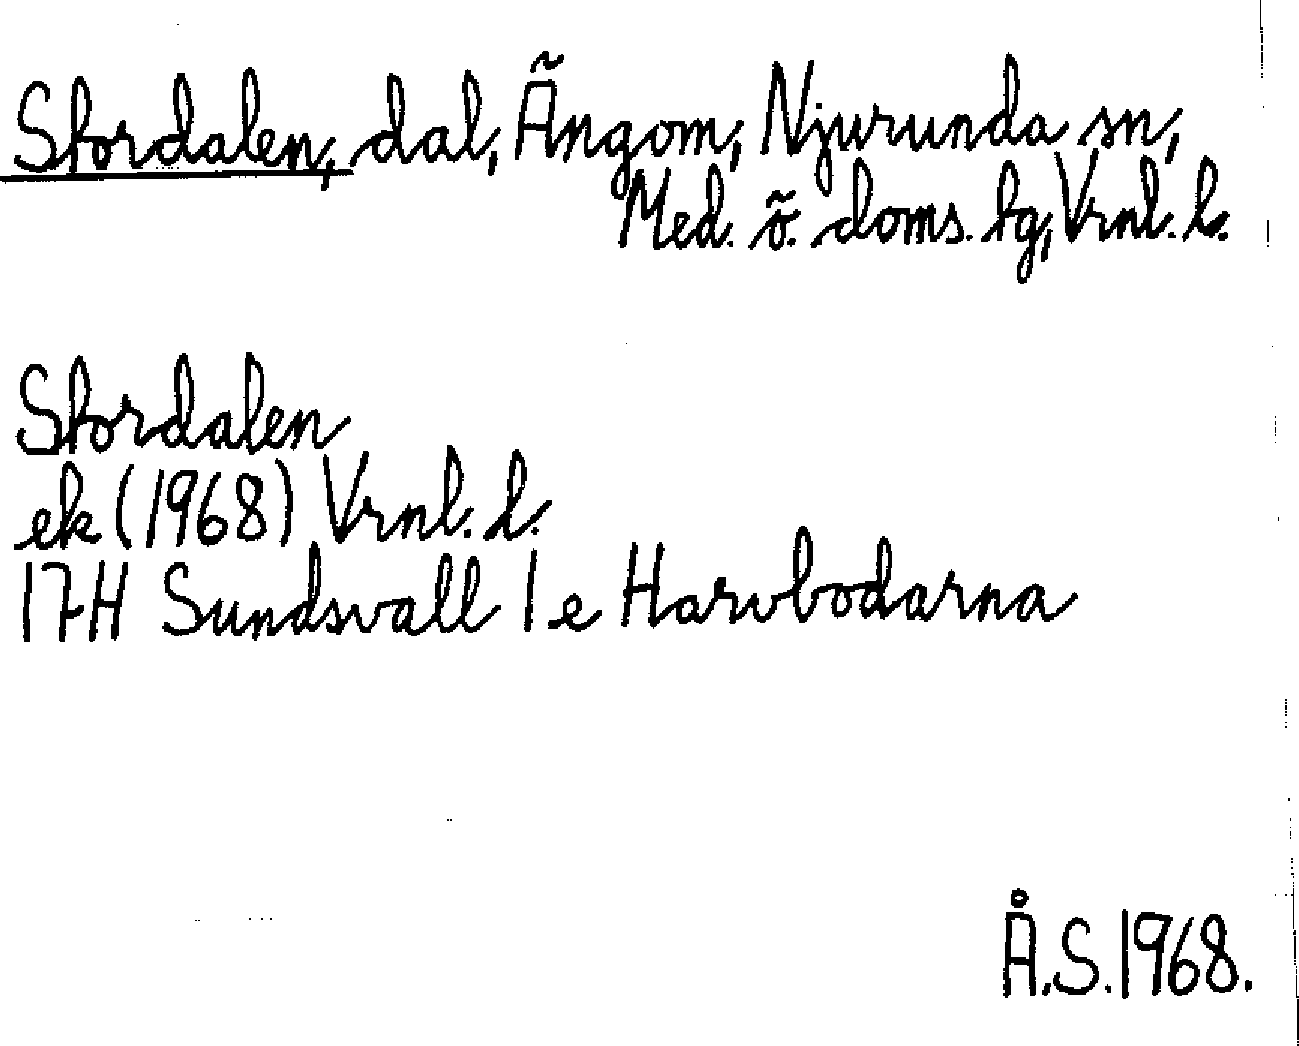 Stordalen, dal, Ängom, Njurunda sn,
Med. ö. doms. tg, Vrnl. l.
Stordalen
ek (1968) Vrnl. l.
17H Sundsvall 1 e Harvbodarna
Å.S. 1968.